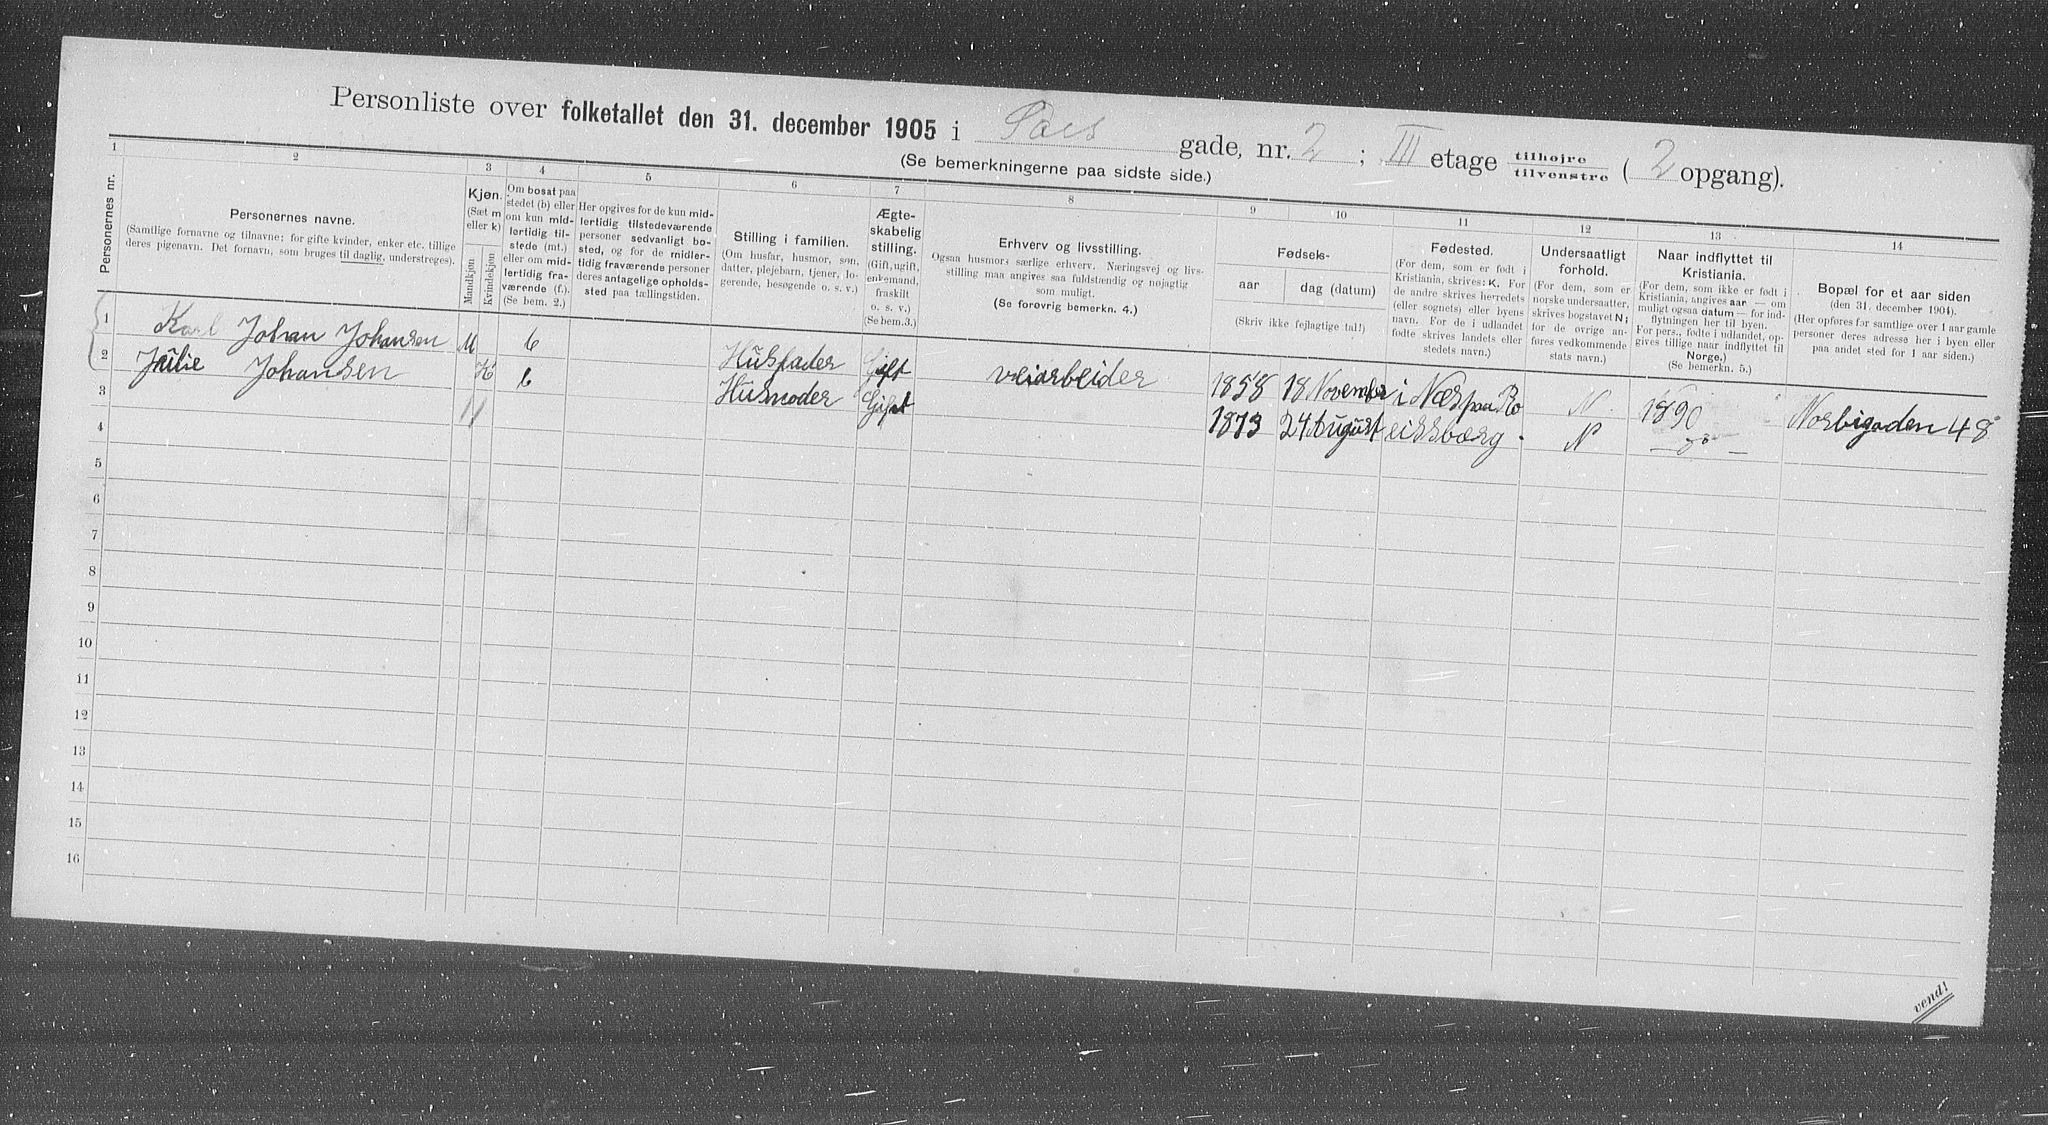 Personliste over folketallet den 31. december 1905 i Paes gade, nr. 2 ; III etage tilhøjre tilvenstre ( 2 opgang).
(Se bemerkningerne paa sidste side.)
1 2 3 4 5 6 7 8 9 10 11 12 13 14
Personernes nr.
Personernes navne.
(Samtlige fornavne og tilnavne; for gifte kvinder, enker etc. tillige
deres pigenavn. Det fornavn, som bruges til daglig, understreges).
Kjøn.
(Sæt m
eller k)
Mandkjøn
Kvindekjøn
Om bosat paa
stedet (b) eller
om kun mid-
lertidig til-
stede (mt.)
eller om mid-
lertidig fra-
værende (f.).
(Se bem. 2.)
Her opgives for de kun mid-
lertidig tilstedeværende
personer sedvanligt bo-
sted, og for de midler-
tidig fraværende personer
deres antagelige opholds-
sted paa tællingstiden.
Stilling i familien.
(Om husfar, husmor, søn,
datter, plejebarn, tjener, lo-
gerende, besøgende o. s. v.)
Ægte-
skabelig
stilling.
(Gift, ugift,
enkemand,
fraskilt
o. s. v.)
(Se bem. 3.)
Erhverv og livsstilling.
Ogsaa husmors særlige erhverv. Næringsvej og livs-
stilling maa angives saa fuldstændig og nøjagtig
som muligt.
(Se forøvrig bemerkn. 4.)
Fødsels-
aar dag (datum)
(Skriv ikke fejlagtige tal!)
Fødested.
(For dem, som er født i
Kristiania, skrives: K. For
de andre skrives herredets
(eller sognets) eller byens
navn. For de i udlandet
fødte skrives landets eller
stedets navn.)
Undersaatligt
forhold.
(For dem, som er
norske undersaatter,
skrives bogstavet N;
for de øvrige an-
føres vedkommende
stats navn.)
Naar indflyttet til
Kristiania.
(For dem, som ikke er født i
Kristiania, angives aar — om
muligt ogsaa datum — for ind-
flytningen her til byen.
For pers., fødte i udlandet, op-
gives tillige naar indflyttet til
Norge.)
(Se bemerkn. 5.)
Bopæl for et aar siden
(den 31. december 1904).
(Her opføres for samtlige over 1 aar gamle
personer deres adresse her i byen eller
paa andet sted for 1 aar siden.)
1 Karl Johan Johansen M b Husfader Gift veiarbeider 1858 18 November i Næs paa Ro N. 1890 Norbigaden 48
2 Julie Johansen K b Husmoder Gift 1873 24 August eissbærg. N do
3
4
5
6
7
8
9
10
11
12
13
14
15
16
vend!